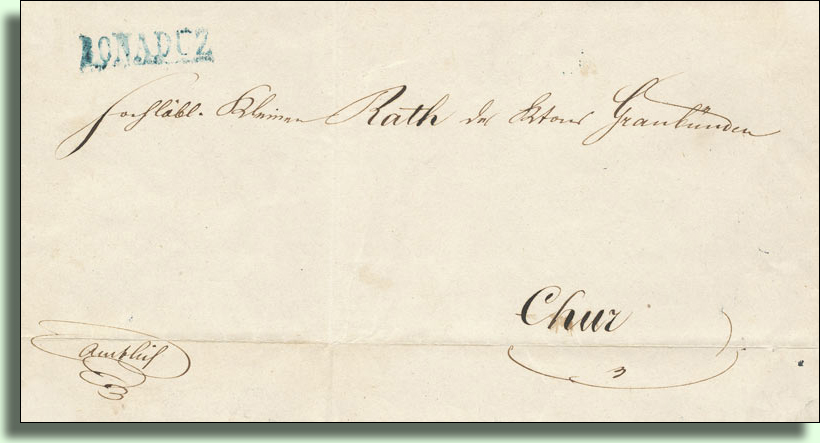 BONADUZ
Hochlöbl. Kleinen Rath des Ktons Graubünden
Chur
Amtlich